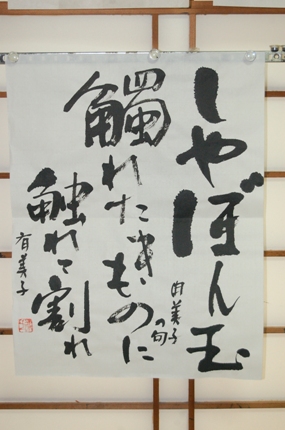 しやぼん玉
觸れたきものに
触れて割れ
由美子の句
有美子